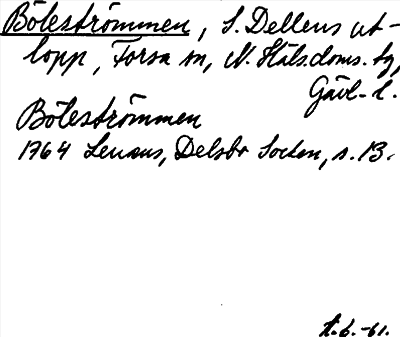 Böleströmmen, S. Dellens ut-
lopp, Forsa sn, N. Häls. doms. tg,
Gävl. l.
Böleströmmen
1764 Lenæus, Delsbo Socken, s. 13.
H. G. -61.